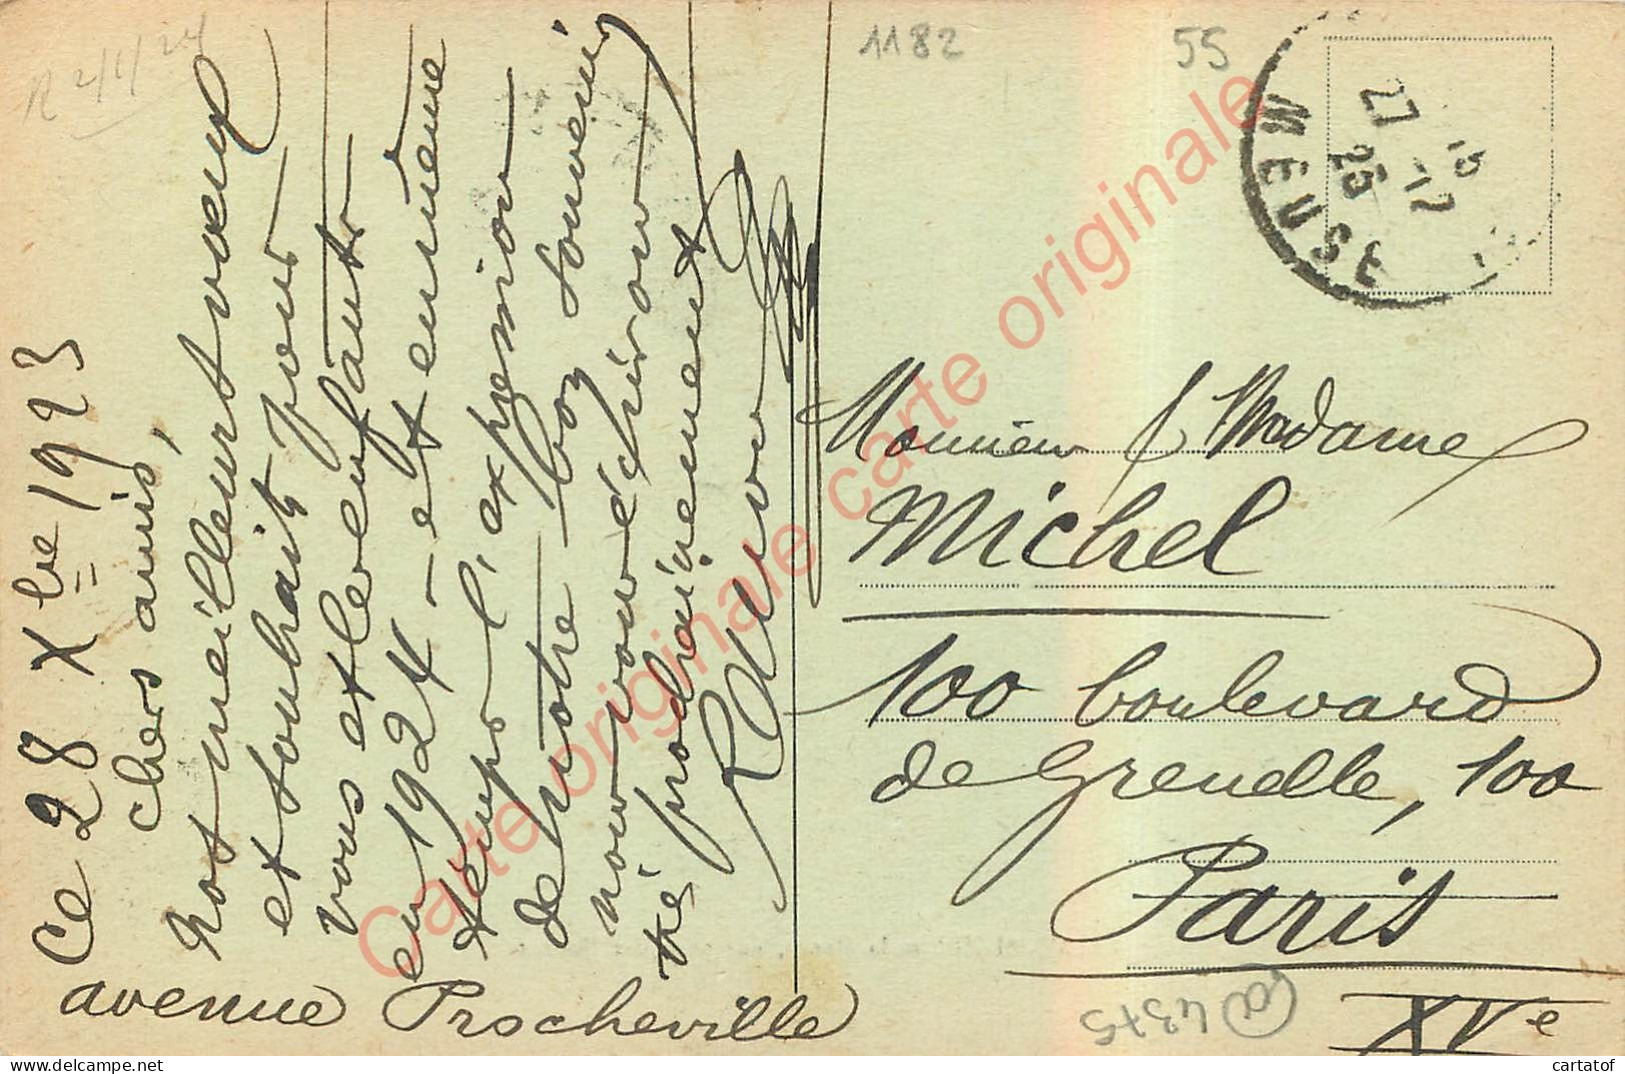 R 2/1/24
1182
55
MEUSE
16
27 - 12
23
Ce 28 Xbre 1923
Chers amis,
Nos meilleurs voeux
et souhaits pour
vous et les enfants
en 1924 - et en même
temps l'expression
de notre bon souvenir
nous vous écrirons
prochainement
avenue Procheville
Monsieur & Madame
Michel
100 boulevard
de Grenelle, 100
Paris
XVe
4375
Carte originale carte originale carte originale
cartatof